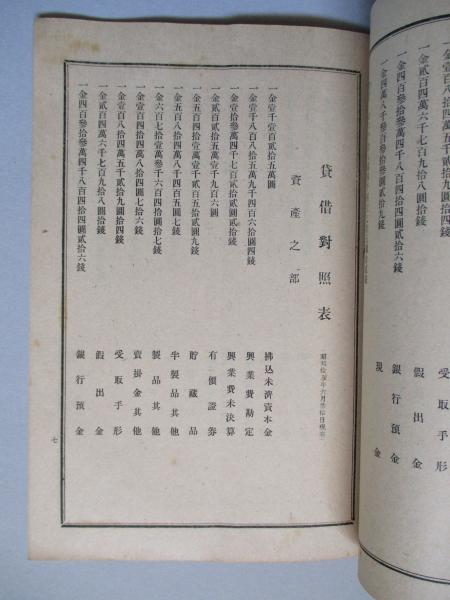 受取手形
一金貳百四萬六千七百九拾八圓拾錢 假出金
一金四百參拾參萬四千八百四拾四圓貳拾六錢 銀行預金
一金四萬八千參百參拾參圓貳拾九錢 現金
貸借對照表 昭和拾五年六月參拾日現在
資產之部
一金壹千壹百貳拾五萬圓 拂込未濟資本金
一金壹千八百八拾五萬九千四百六拾圓四錢 興業費勘定
一金壹拾參萬四千七百貳拾貳圓貳拾錢 興業費未決算
一金貳百貳拾五萬壹千九百六圓 有價證券
一金五百四拾壹萬壹千貳百五拾貳圓九錢 貯藏品
一金五百八拾四萬八千四百五圓七錢 半製品其他
一金六百七拾壹萬參千六百四拾圓拾七錢 製品其他
一金壹百四拾四萬八千八拾四圓七拾六錢 賣掛金其他
一金壹百八拾四萬五千貳百拾九圓四拾錢 受取手形
一金貳百四萬六千七百九拾八圓拾錢 假出金
一金四百參拾參萬四千八百四拾四圓貳拾六錢 銀行預金
七